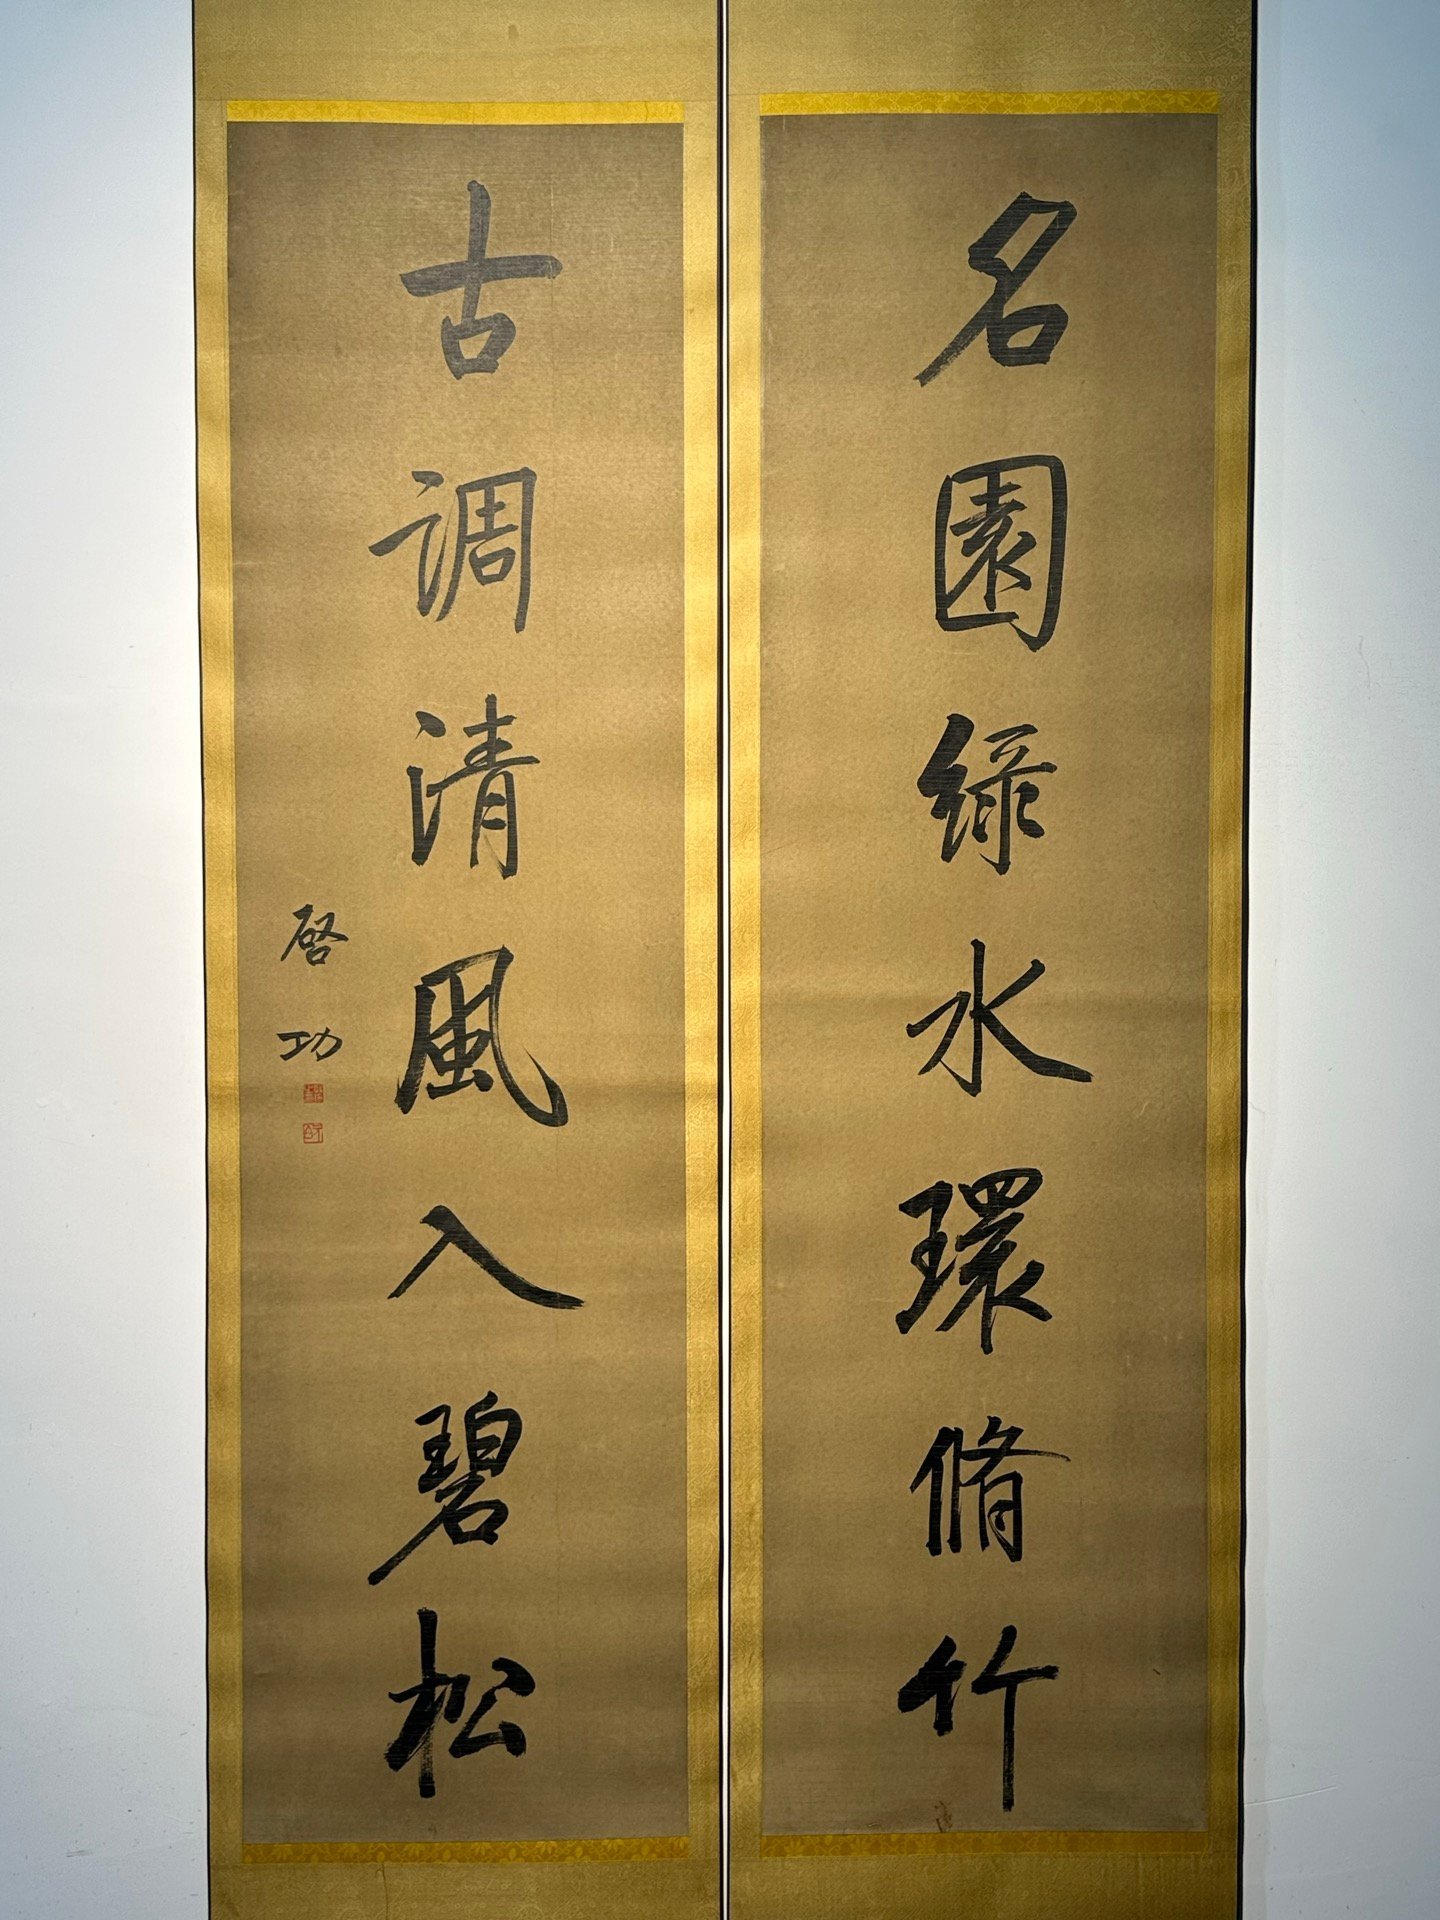 名園緑水環脩竹
古調清風入碧松
啓功